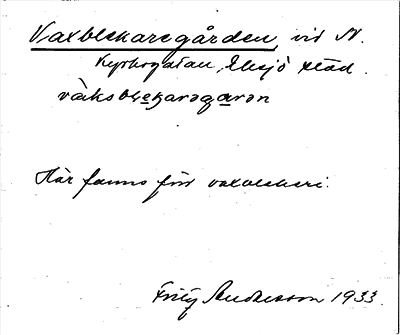 Vaxblekaregården, vid N.
Kyrkogatan, Eksjö stad.
våksblekaragarən
Här fanns förr vaxblekeri.
Fritz Andersson 1933.